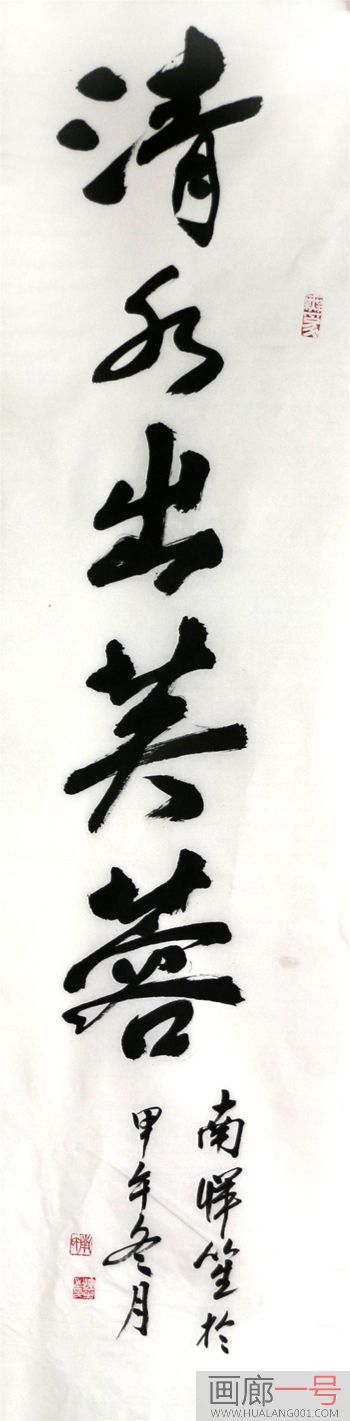 清水出芙蓉
南恽笙於
甲午冬月
画廊一号
WWW.HUALANG001.COM